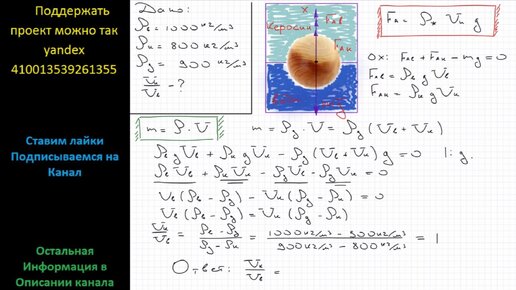 Поддержать
проект можно так
yandex
410013539261355
Ставим лайки
Подписываемся на
Канал
Остальная
Информация в
Описании канала
Дано:
ρв = 1000 кг/м3
ρк = 800 кг/м3
ρд = 900 кг/м3
Vк/Vв - ?
x
Fав
Керосин
Fак
Вода
mg
FA = ρж Vп g
Ox: Fав + Fак - mg = 0
Fав = ρв g Vв
Fак = ρк g Vк
m = ρ · V
m = ρд · V = ρд (Vв + Vк)
ρв g Vв + ρк g Vк - ρд (Vв + Vк) g = 0 |: g
ρв Vв + ρк Vк - ρд Vв - ρд Vк = 0
Vв (ρв - ρд) - Vк (ρд - ρк) = 0
Vв (ρв - ρд) = Vк (ρд - ρк)
Vк/Vв = (ρв - ρд)/(ρд - ρк) = (1000 кг/м3 - 900 кг/м3)/(900 кг/м3 - 800 кг/м3) = 1
Ответ: Vк/Vв =